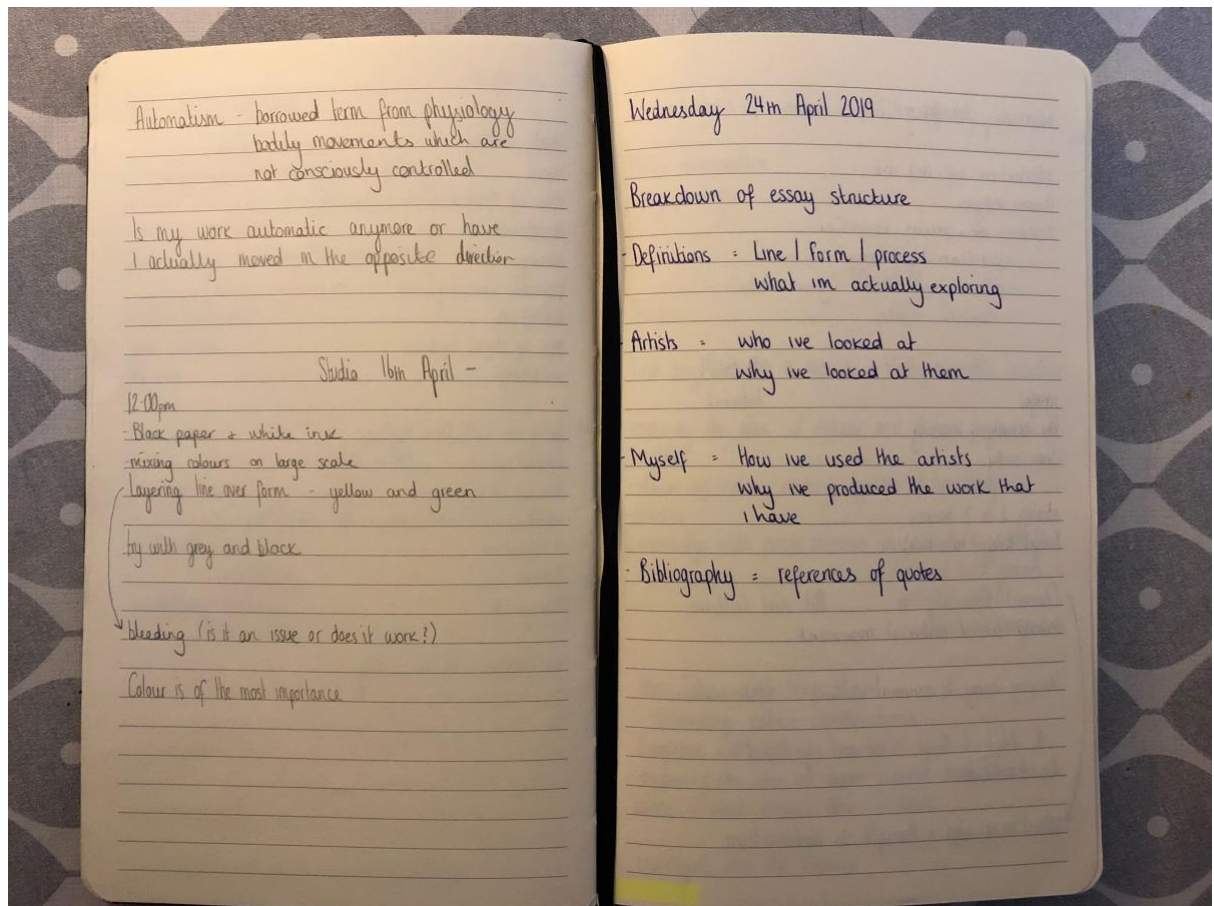 Automatism - borrowed term from physiology
bodily movements which are
not consciously controlled
Is my work automatic anymore or have
I actually moved in the opposite direction
Studio 16th April -
12:00pm
- Black paper + white ink
- mixing colours on large scale
- Layering line over form - yellow and green
try with grey and black
bleeding (is it an issue or does it work?)
Colour is of the most importance
Wednesday 24th April 2019
Breakdown of essay structure
- Definitions = Line / form / process
what im actually exploring
- Artists = who ive looked at
why ive looked at them
- Myself = How ive used the artists
why ive produced the work that
i have
- Bibliography = references of quotes